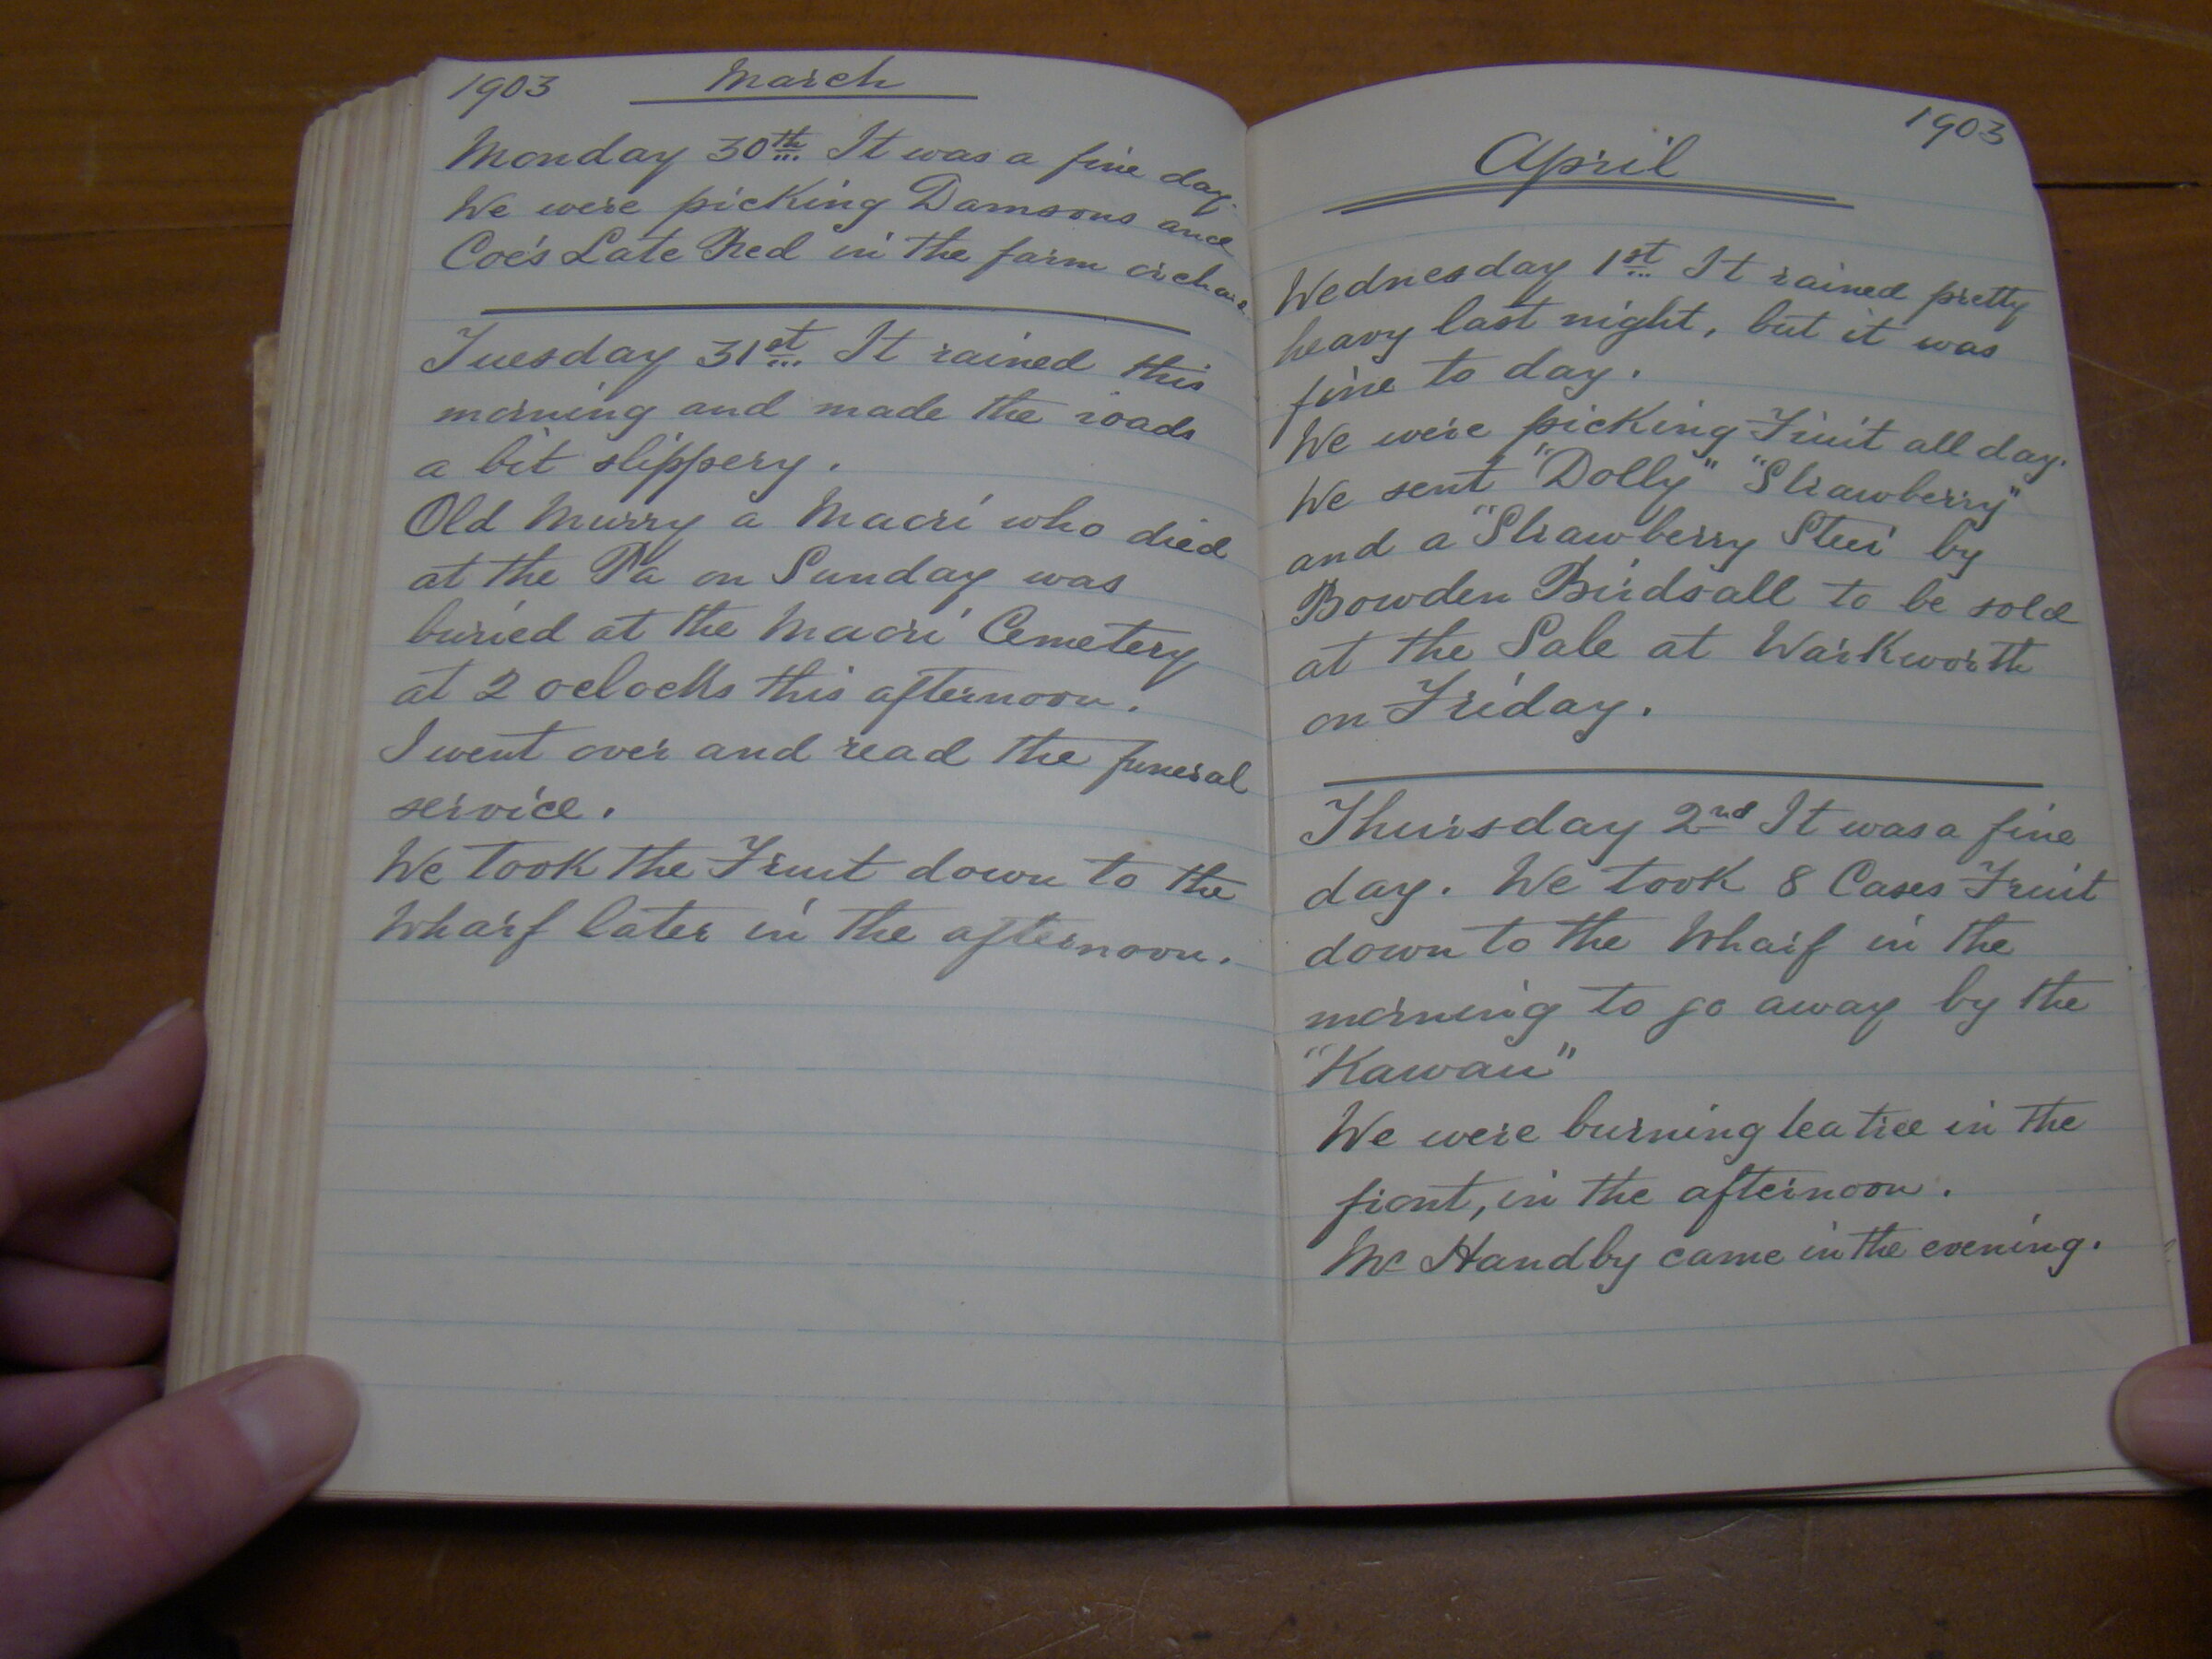 1903 March
Monday 30th It was a fine day.
We were picking Damsons and
Coe's Late Red in the farm orchard.
Tuesday 31st It rained this
morning and made the roads
a bit slippery.
Old Murry a Maori who died
at the Pa on Sunday was
buried at the Maori Cemetery
at 2 oclocks this afternoon.
I went over and read the funeral
service.
We took the Fruit down to the
Wharf later in the afternoon.
1903
April
Wednesday 1st It rained pretty
heavy last night, but it was
fine to day.
We were picking Fruit all day.
We sent "Dolly" "Strawberry"
and a "Strawberry Steer by
Bowden Birdsall to be sold
at the Sale at Warkworth
on Friday.
Thursday 2nd It was a fine
day. We took 8 Cases Fruit
down to the Wharf in the
morning to go away by the
"Kawau"
We were burning tea tree in the
front, in the afternoon.
Mr Handby came in the evening.